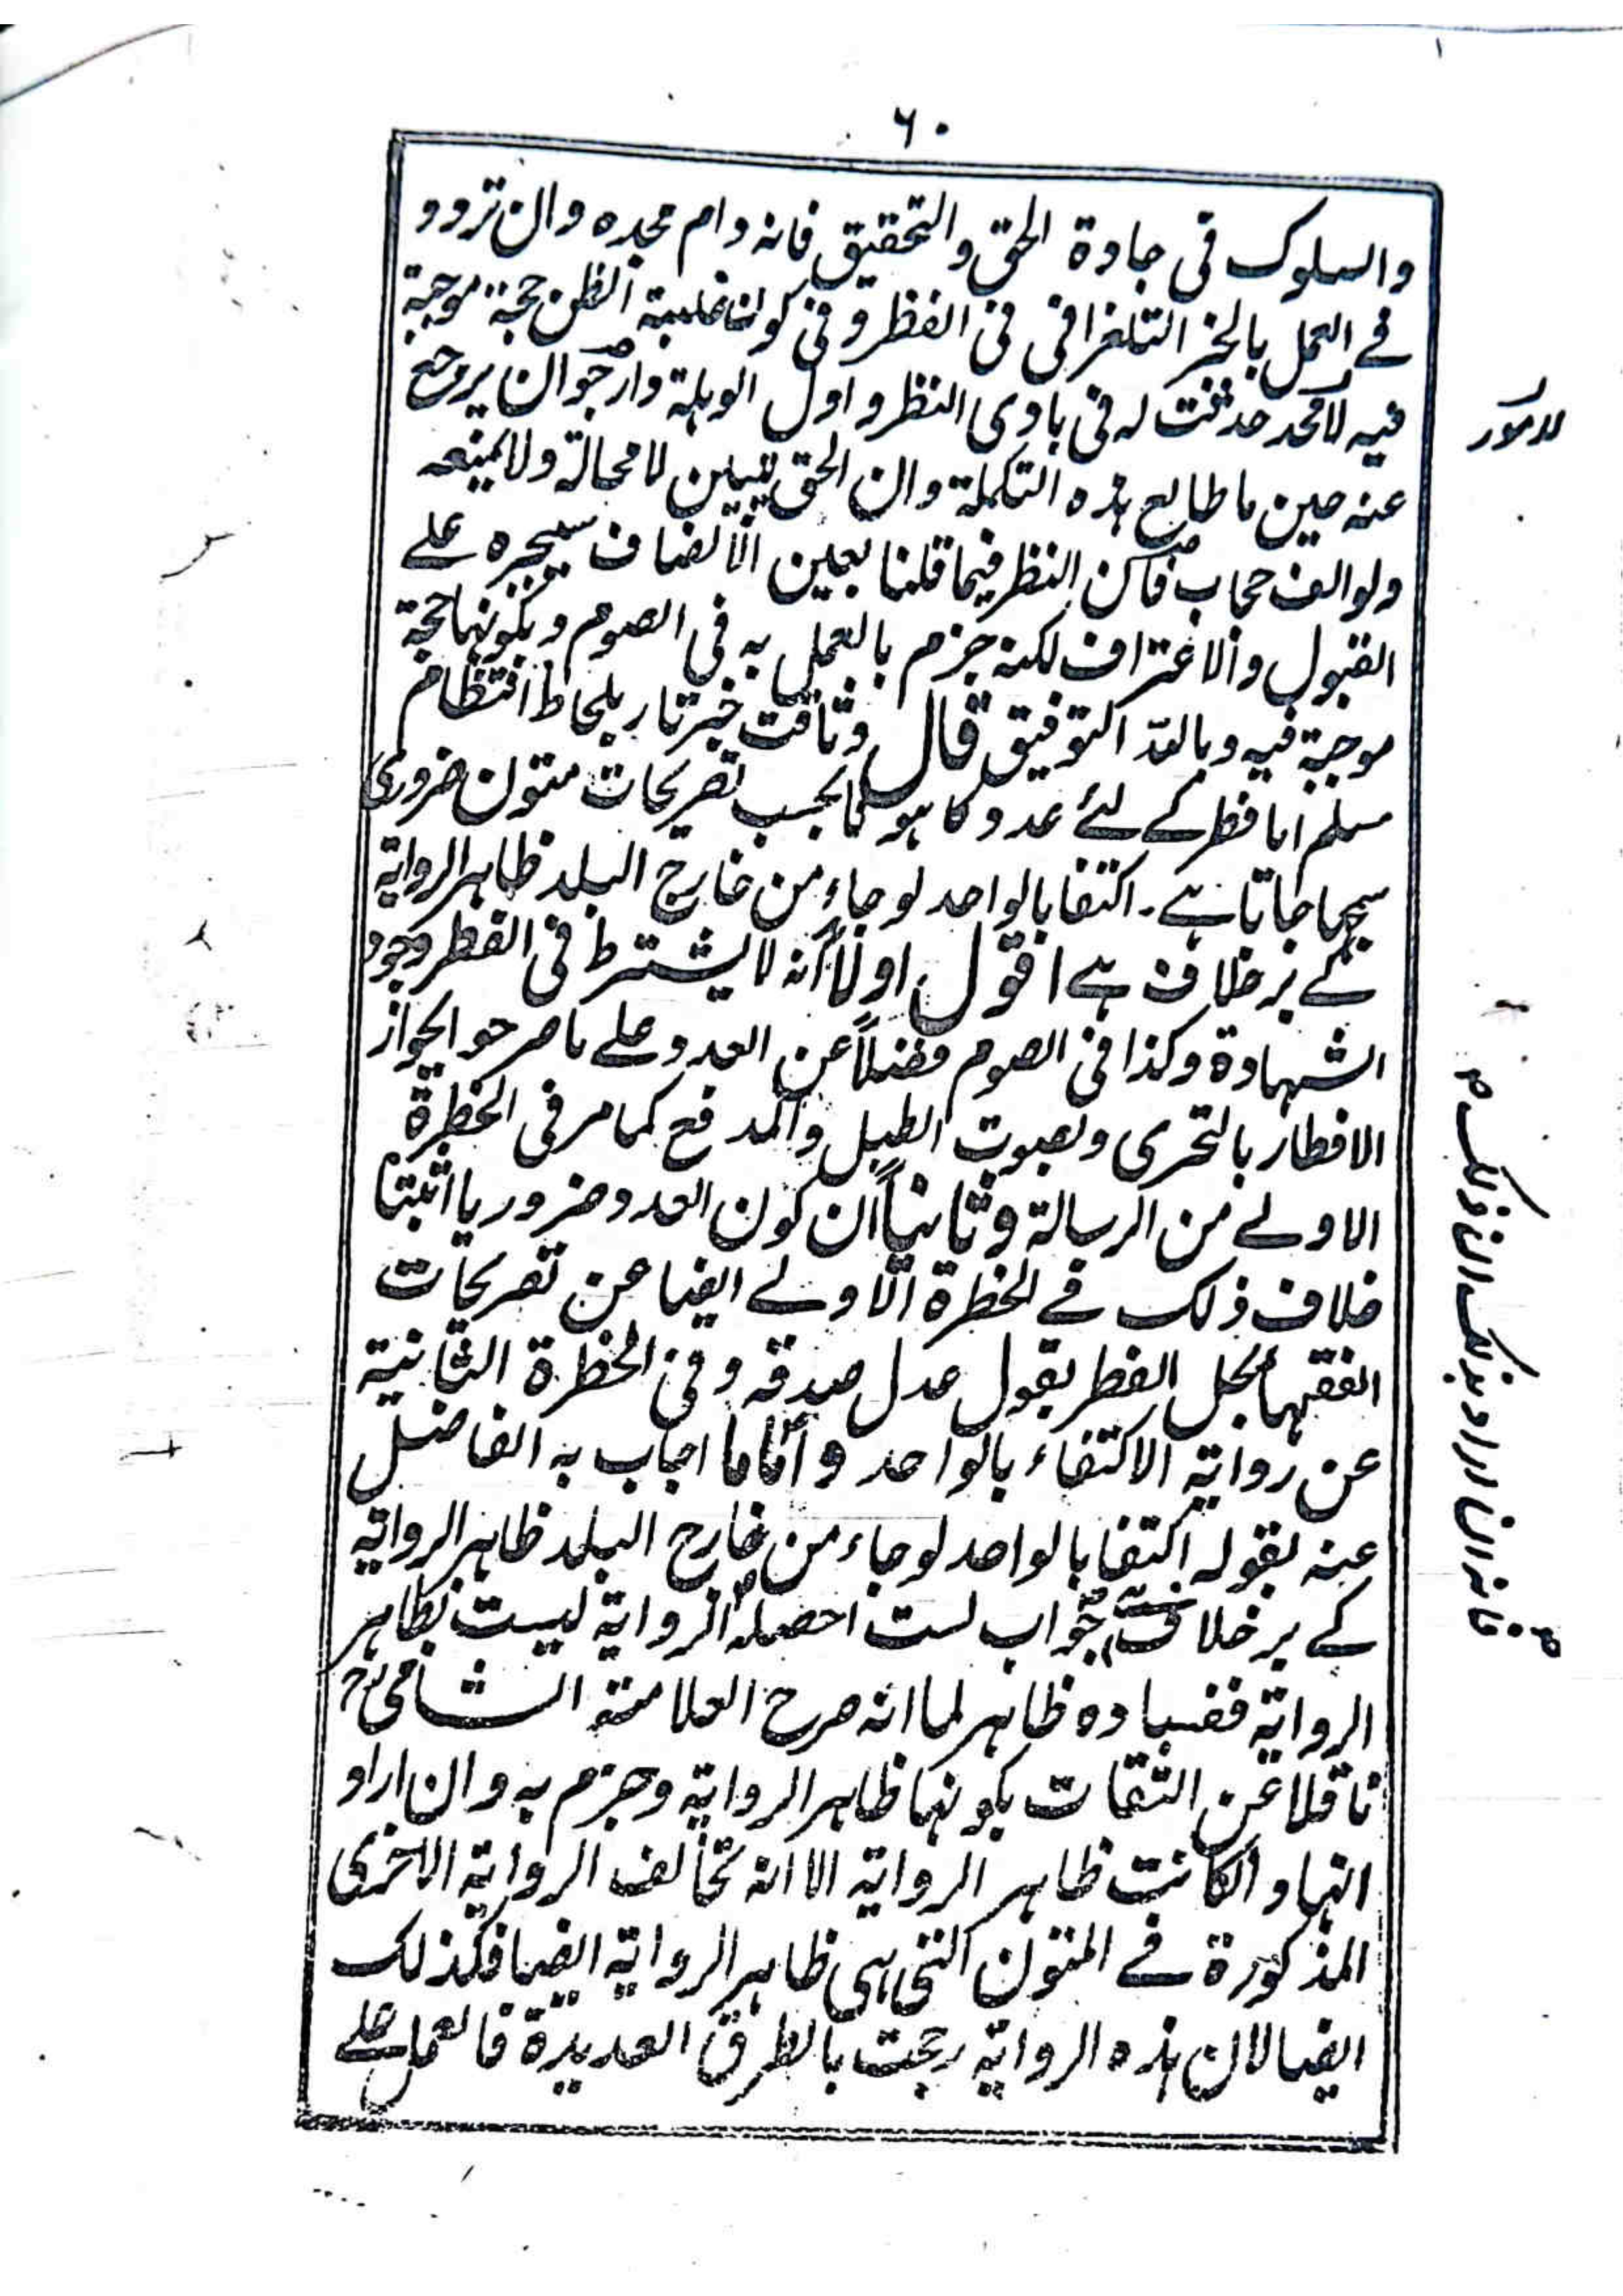 ۶۰
والسلوک فی جادۃ الحق والتحقیق فانہ دام مجدہ وان تردد
فے العمل بالخبر التلغرافی فی الفطر و فی کون غلبۃ الظن حجۃ موجبۃ
فیہ لامور حدثت لہ فی بادی النظر و اول الوہلۃ وارجو ان یرجع
عنہ حین ما طالع ہذہ التکملۃ وان الحق یتبین لا محالۃ ولا یمنعہ
ولو الف حجاب فامعن النظر فیما قلنا بعین الانصاف سیجبرہ علے
القبول والاعتراف لکنہ جزم بالعمل بہ فی الصوم و بکونہا حجۃ
موجبۃ فیہ و باللہ التوفیق قال وثاقت خبر تار بلحاظ انتظام
مسلم اما فطر کے لئے عدد کا ہونا بحسب تصریحات متون ضروری
سمجھا جاتا ہے۔ اکتفا بالواحد لو جاء من خارج البلد ظاہر الروایۃ
کے بر خلاف ہے اقول اولاً انہ لا یشترط فی الفطر وجود
الشہادۃ وکذا فی الصوم فضلاً عن العدد علے ما صرحوا بجواز
الافطار بالتحری وبصوت الطبل والمدفع کما مر فی الخطرۃ
الاولے من الرسالۃ وثانیاً ان کون العدد ضروریا اثبتنا
خلاف ذلک فے الخطرۃ الاولے ایضا عن تصریحات
الفقہا بحل الفطر بقول عدل صدقہ و فی الخطرۃ الثانیۃ
عن روایۃ الاکتفاء بالواحد و اما ما اجاب بہ الفاضل
عنہ بقولہ اکتفا بالواحد لو جاء من خارج البلد ظاہر الروایۃ
کے بر خلاف ہے جواب لست احصلہ الروایۃ لیست بظاہر
الروایۃ ففسادہ ظاہر لما انہ صرح العلامۃ الشامی رح
ناقلا عن الثقات بکونہا ظاہر الروایۃ وجزم بہ وان اراد
انہا وان کانت ظاہر الروایۃ الا انہ تخالف الروایۃ الاخری
المذکورۃ فے المتون التی ہی ظاہر الروایۃ ایضا فکذلک
ایضا لان ہذہ الروایۃ رجحت بالطرق العدیدۃ فالعمل علے
لامور
فانہ ان اراد بذلک ان ذلک